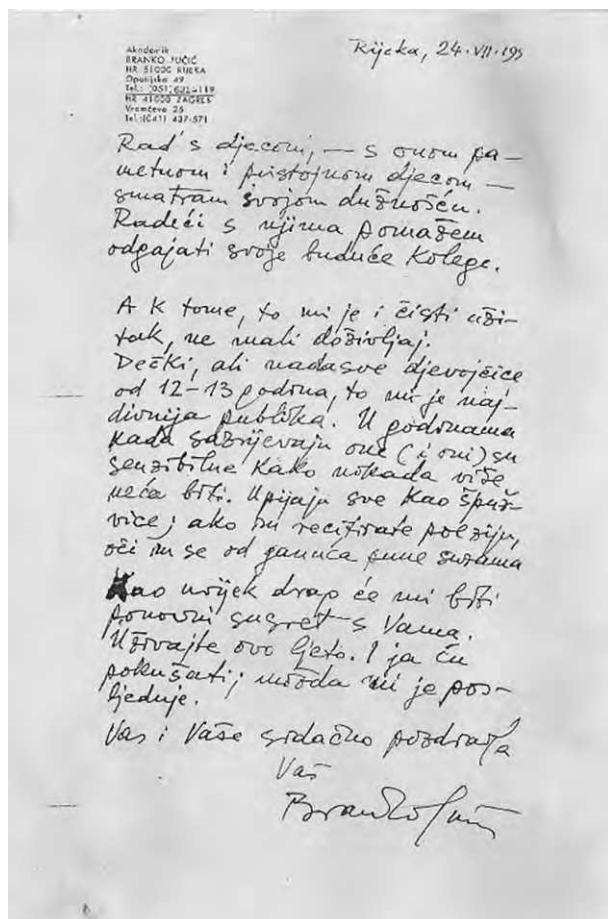 Akademik
BRANKO FUČIĆ
HR 51000 RIJEKA
Opatijska 49
Tel.: (051) 621-119
HR 41000 ZAGREB
Vramčeva 26
Tel.:(041) 437-571
Rijeka, 24.VII.199
Rad s djecom, — s onom pa-
metnom i pristojnom djecom —
smatram svojom dužnošću.
Radeći s njima pomažem
odgajati svoje buduće kolege.
A k tome, to mi je i čisti uži-
tak, ne mali doživljaj.
Dečki, ali nadasve djevojčice
od 12-13 godina, to mi je naj-
divnija publika. U godinama
kada sazrijevaju one (i oni) su
senzibilne kako nikada više
neća biti. Upijaju sve kao špuž-
vice; ako im recitirate poeziju,
oči im se od ganuća pune suzama
Kao uvijek drag će mi biti
ponovni susret s Vama.
Uživajte ovo ljeto. I ja ću
pokušati; možda mi je pos-
ljednje.
Vas i Vaše srdačno pozdravlja
Vaš
Branko Fučić